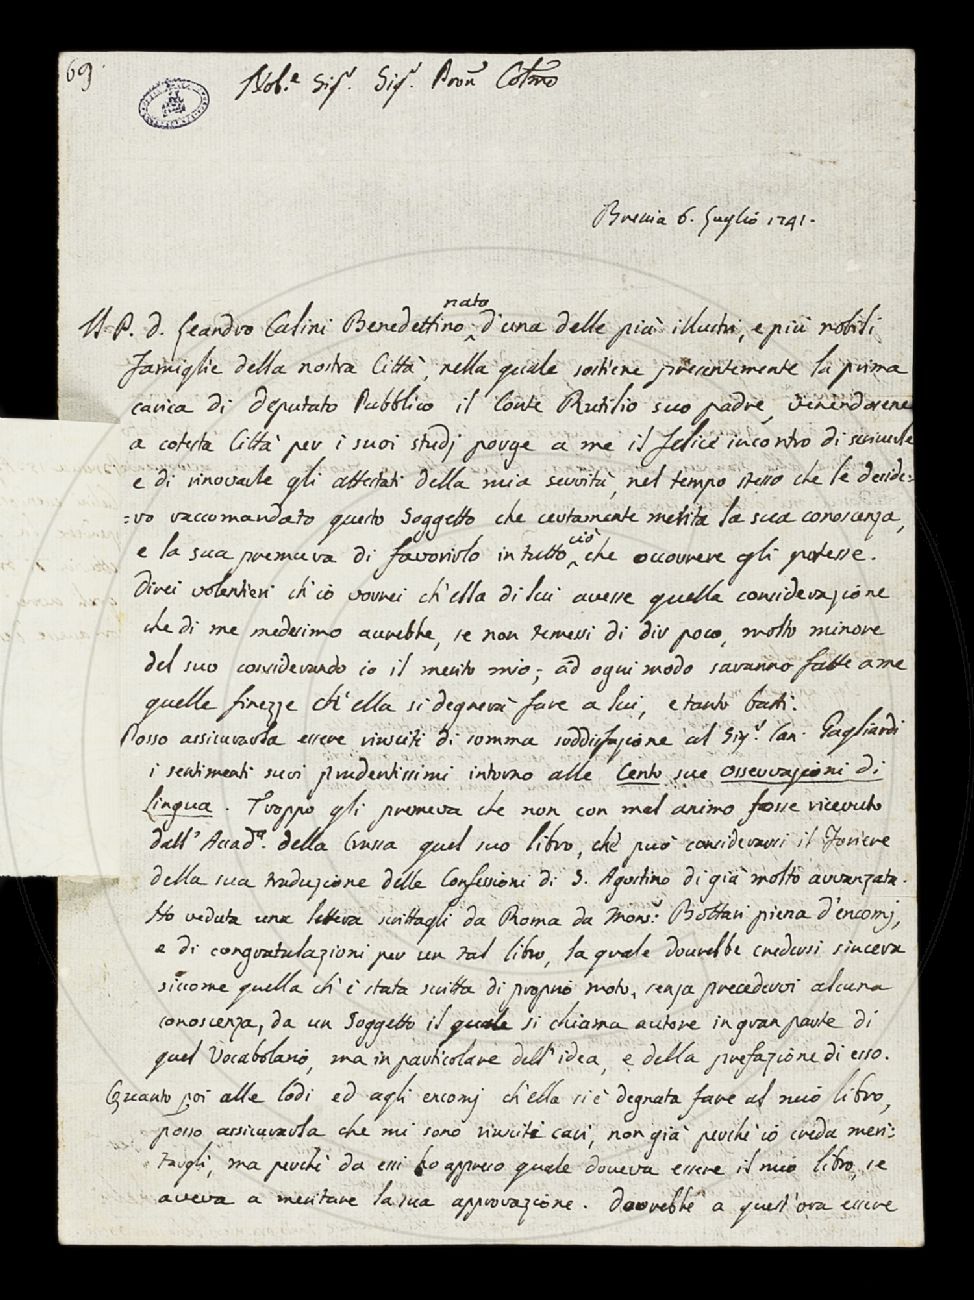 69.
Nob.e Sig.r Sig.r Pron Colmo
Brescia 6. Luglio 1741.
Il P. D. Leandro Calini Benedettino nato d'una delle più illustri, e più nobili
famiglie della nostra Città, nella quale sostiene presentemente la prima
carica di deputato Pubblico il Conte Rutilio suo padre, venendosene
a cotesta Città per i suoi studj porge a me il felice incontro di scriverle
e di rinovarle gli attestati della mia servitù, nel tempo stesso che le deside:
:ro raccomandato questo Soggetto che certamente merita la sua conoscenza,
e la sua premura di favorirlo in tutto ciò che occorrere gli potesse.
Direi volentieri ch'io vorrei ch'ella di lui avesse quella considerazione
che di me medesimo avrebbe, se non temessi di dir poco, molto minore
del suo considerando io il merito mio; ad ogni modo saranno fatte a me
quelle finezze ch'ella si degnerà fare a lui, e tanto basti.
Posso assicurarla essere riusciti di somma soddisfazione al Sig.r Can. Gagliardi
i sentimenti suoi prudentissimi intorno alle Cento sue Osservazioni di
Lingua. Troppo gli premeva che non con mal animo fosse ricevuto
dall'Accad.a della Crusca quel suo libro, che può considerarsi il foriere
della sua traduzione delle Confessioni di S. Agostino di già molto avvanzata.
Ho veduta una lettera scrittagli da Roma da Mons.r Bottari piena d'encomj,
e di congratulazioni per un tal libro, la quale dovrebbe credersi sincera
siccome quella ch'è stata scritta di proprio moto, senza precedervi alcuna
conoscenza, da un Soggetto il quale si chiama autore in gran parte di
quel Vocabolario, ma in particolare dell'idea, e della prefazione di esso.
Quanto poi alle lodi ed agli encomj ch'ella si è degnata fare al mio libro,
posso assicurarla che mi sono riusciti cari, non già perchè io creda meri:
targli, ma perchè da essi ho appreso quale doveva essere il mio libro, se
aveva a meritare la sua approvazione. Dovrebbe a quest'ora essere